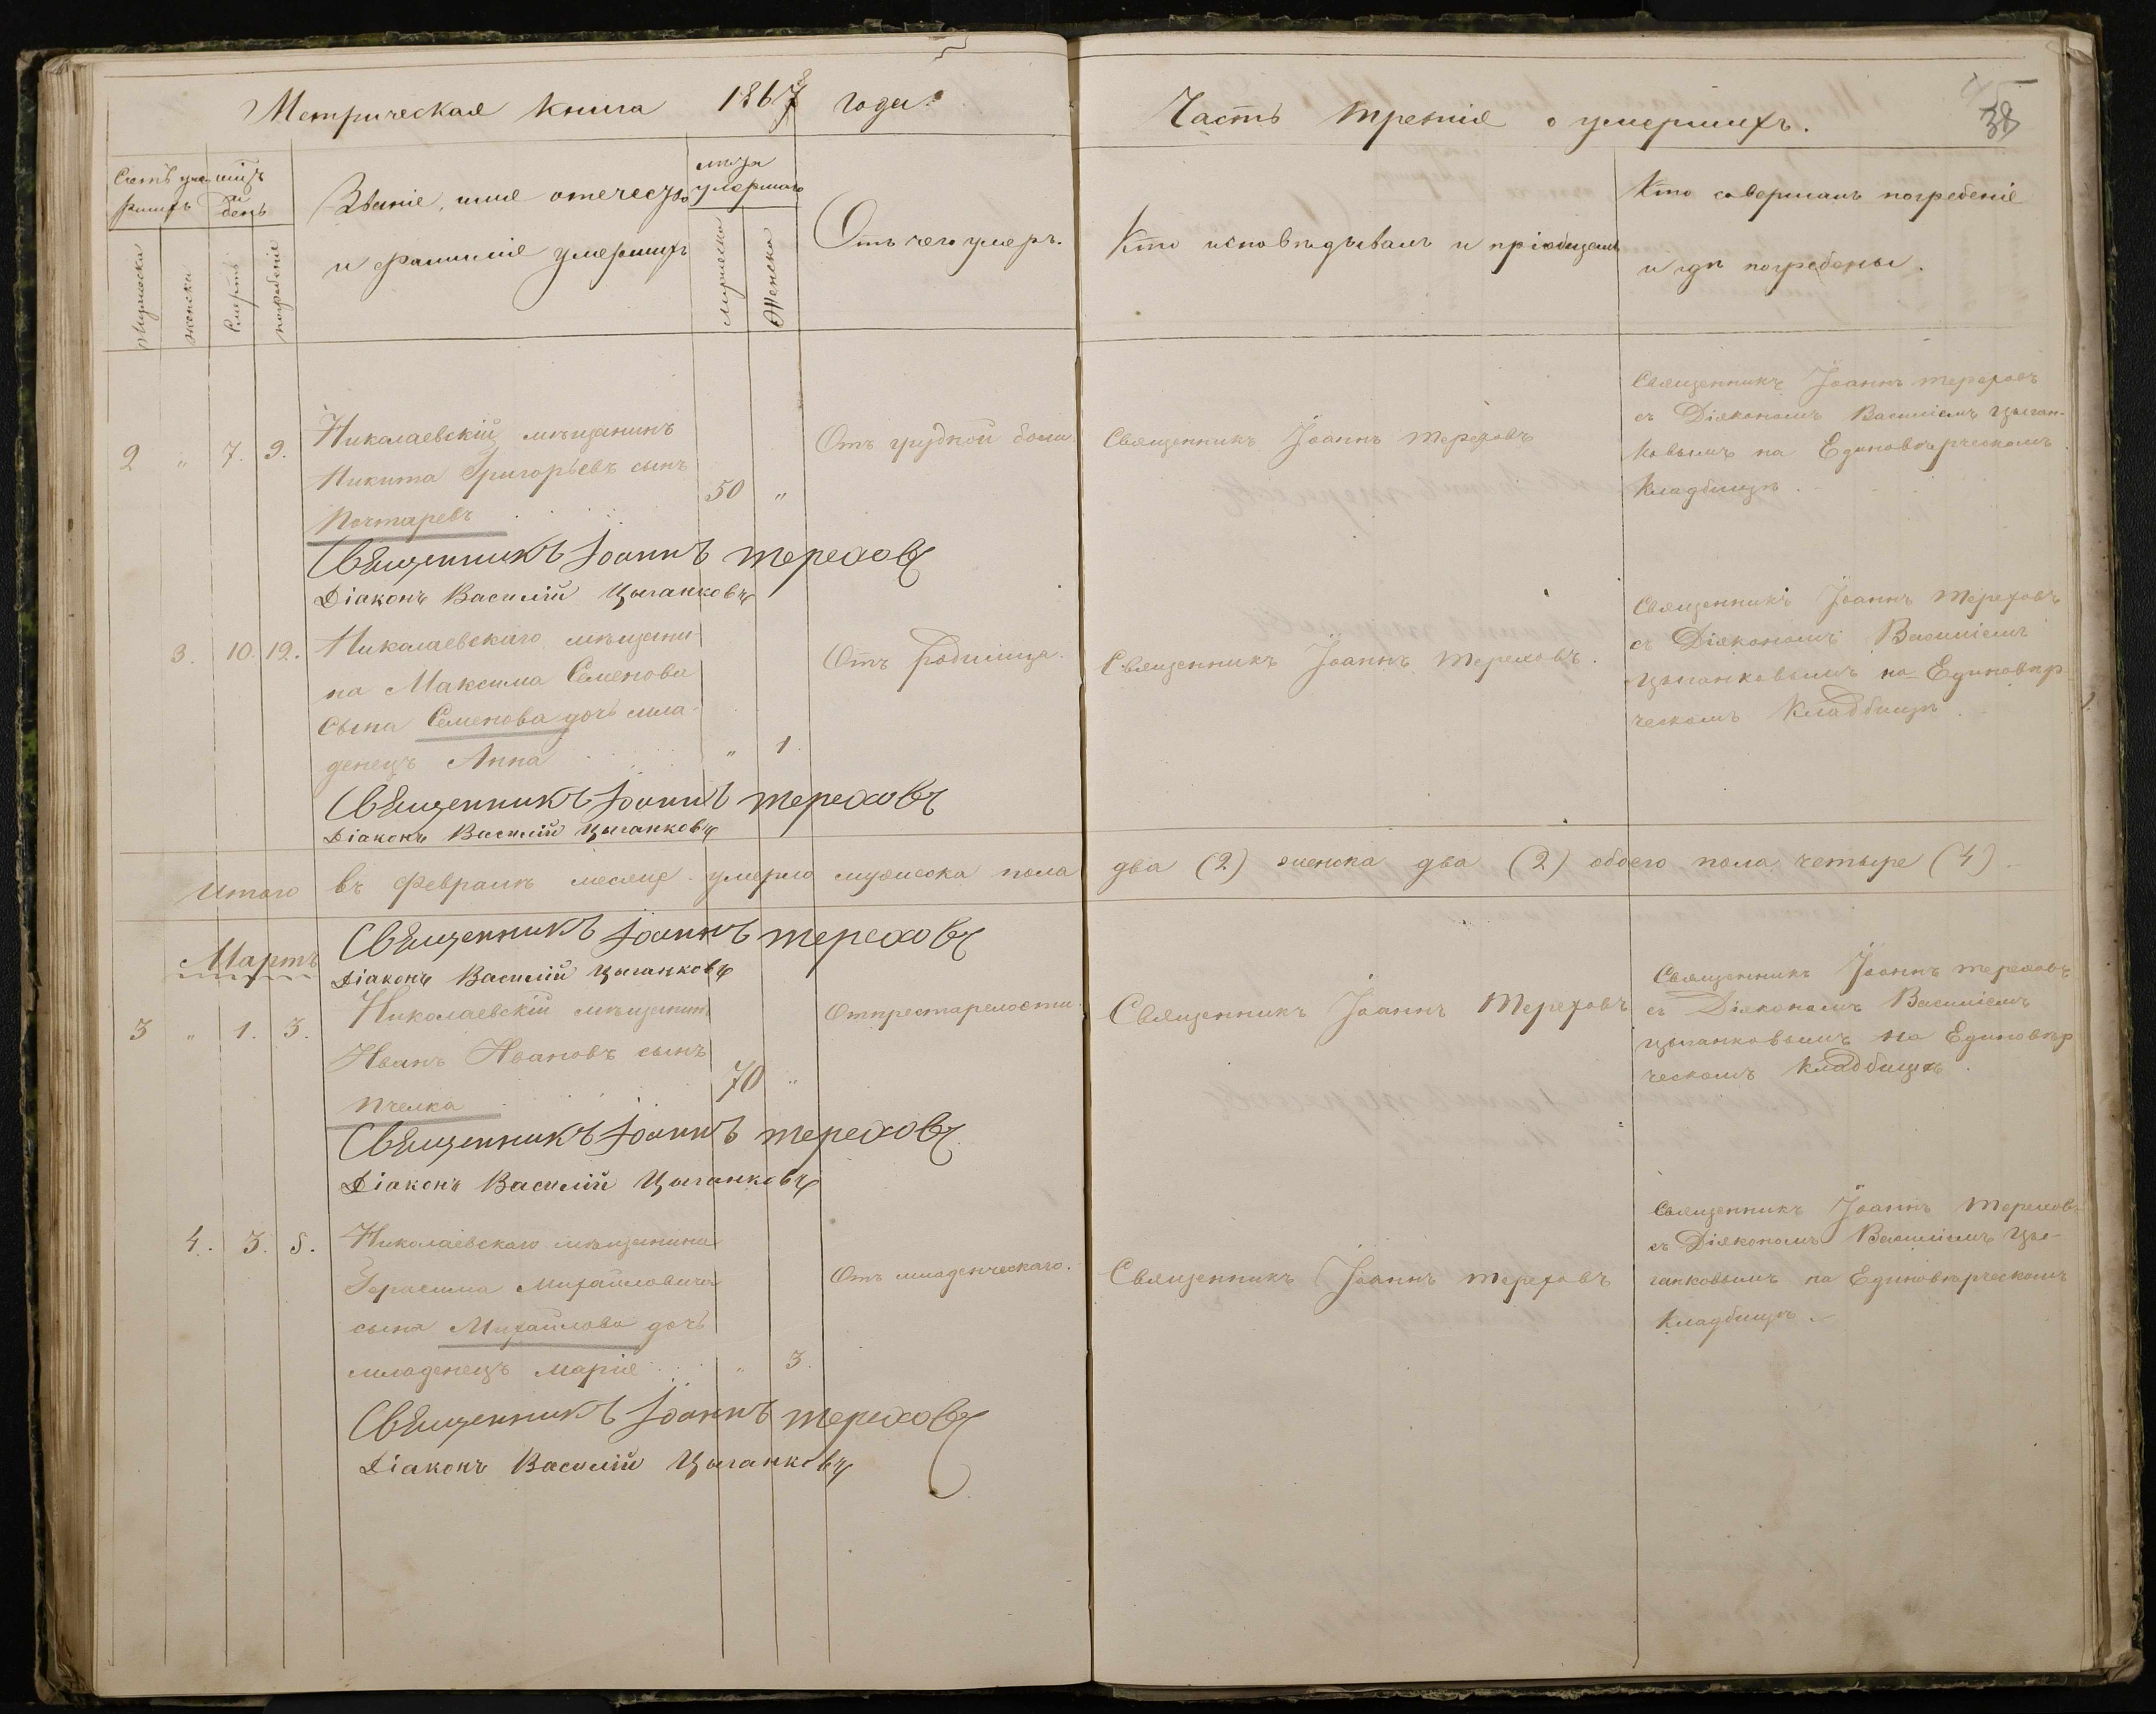 Метрическая книга 1868 года.
Часть третія о умершихъ.
38
Счетъ умершихъ
мѣсяцъ и день
Мужеска
женска
Смерть
погребеніе
Званіе, имя отечество
и фамилія умершихъ
лѣта
умершаго
Мужеска
Женска
Отъ чего умеръ.
Кто исповѣдывалъ и пріобщалъ
Кто совершалъ погребеніе
и гдѣ погребены.
2 " 7. 9.
Николаевскій мѣщанинъ
Никита Григорьевъ сынъ
Почтаревъ
50 "
Отъ грудной боли
Священникъ Іоаннъ Тереховъ
Священникъ Іоаннъ Тереховъ
съ Діякономъ Василіемъ Цыган-
ковымъ на Единовѣрческомъ
Кладбищѣ.
Священникъ Іоаннъ Тереховъ
Діаконъ Василій Цыганковъ
3. 10. 12.
Николаевскаго мѣщани-
на Максима Семенова
сына Семенова дочь мла-
денецъ Анна
" 1.
Отъ родимца.
Священникъ Іоаннъ Тереховъ.
Священникъ Іоаннъ Тереховъ
съ Діякономъ Василіемъ
Цыганковымъ на Единовѣр
ческомъ Кладбищѣ.
Священникъ Іоаннъ Тереховъ
Діаконъ Василій Цыганковъ
Итого въ февралѣ месяце умерло мужеска пола два (2) женска два (2) обоего пола четыре (4).
Священникъ Іоаннъ Тереховъ
Діаконъ Василій Цыганковъ
Мартъ
3 " 1. 3.
Николаевскій мѣщанинъ
Иванъ Ивановъ сынъ
Пчелка
70 "
Отпрестарелости
Священникъ Іоаннъ Тереховъ
Священникъ Іоаннъ Тереховъ
съ Діякономъ Василіемъ
Цыганковымъ на Единовѣр
ческомъ Кладбищѣ.
Священникъ Іоаннъ Тереховъ
Діаконъ Василій Цыганковъ
4. 3. 5.
Николаевскаго мѣщанина
Герасима Михайловича
сына Михайлова дочь
младенецъ Марія
" 3.
Отъ младенческаго.
Священникъ Іоаннъ Тереховъ
Священникъ Іоаннъ Тереховъ
съ Діякономъ Василіемъ Цы-
ганковымъ на Единовѣрческомъ
Кладбищѣ.
Священникъ Іоаннъ Тереховъ
Діаконъ Василій Цыганковъ